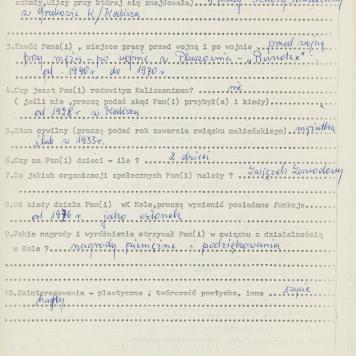 szkoły, ulicy przy której się znajdowała)
w Grabowie k/ Kalisza
3.Zawód Pana(i) , miejsce pracy przed wojną i po wojnie przed wojną
przy mężu - po wojnie w Pluszowni - "Runotex"
od 1940r do 1970r.
4.Czy jest Pan(i) rodowitym Kaliszaninem? nie
( jeśli nie ,proszę podać skąd Pan(i) przybył(a) i kiedy)
od 1928r w Kaliszu
5.Stan cywilny (proszę podać rok zawarcia związku małżeńskiego) mężatka
ślub w 1933r.
6.Czy ma Pan(i) dzieci - ile ? 2 dzieci
7.Do jakich organizacji społecznych Pan(i) należy ? Związek Zawodowy
8.Od kiedy działa Pan(i) wK Kole,proszę wymienić posiadane funkcje
od 1976 r jako członek
9.Jakie nagrody i wyróżnienia otrzymał Pan(i) w związku z działalnością
w Kole ? nagrody pieniężne i podziękowania
10.Zainteresowania - plastyczne , twórczość poetycka, inne szycie
hafty